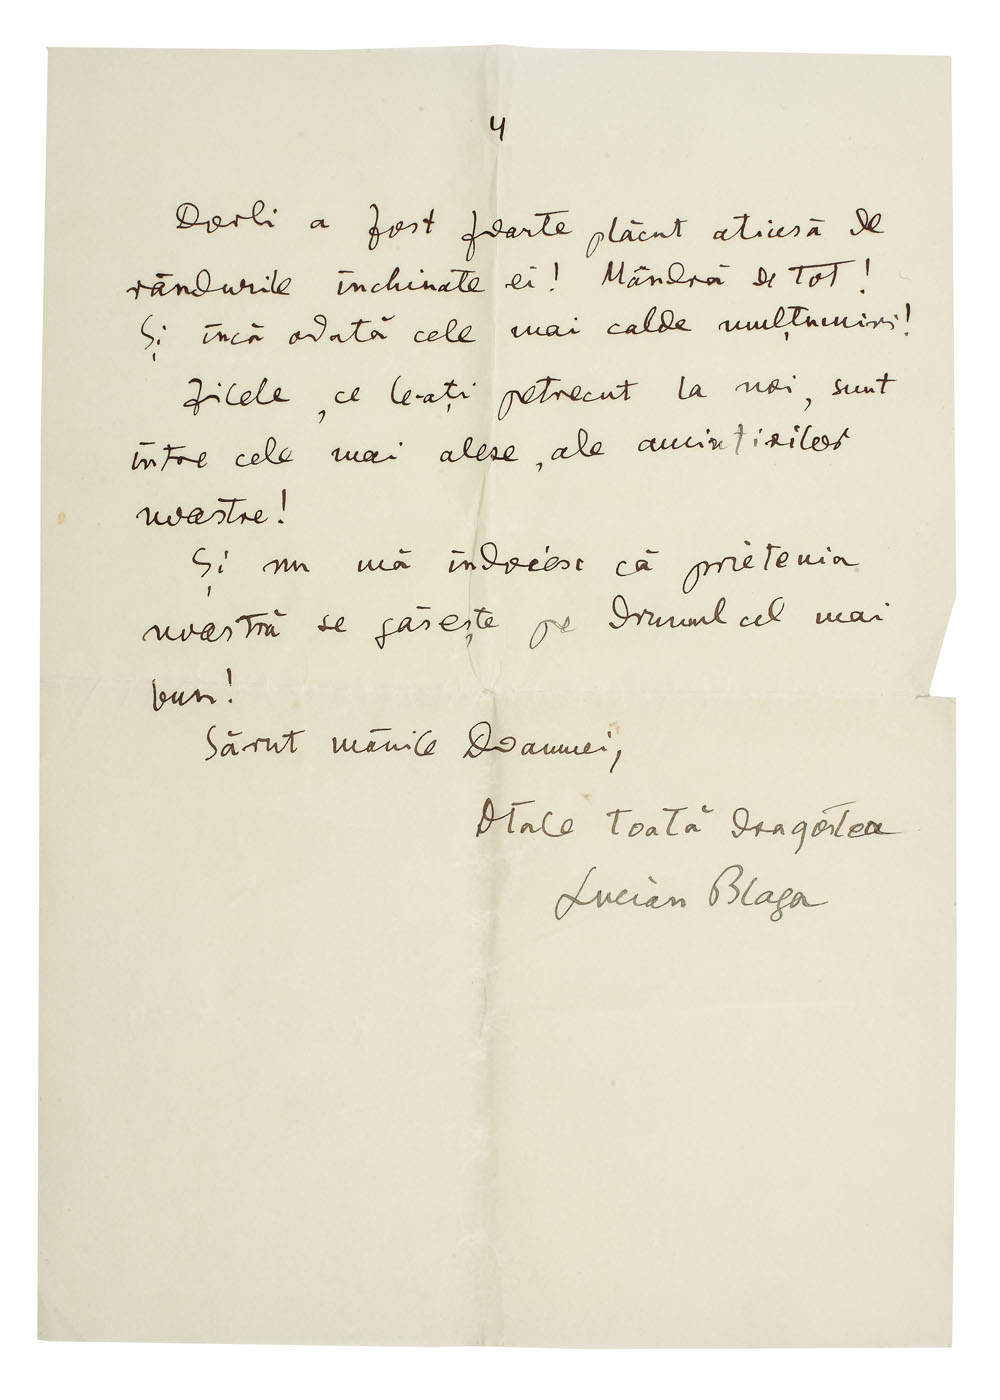 4
Dorli a fost foarte plăcut atinsă de
rândurile închinate ei! Mândră de tot!
Și încă odată cele mai calde mulțumiri!
Zilele, ce le-ați petrecut la noi, sunt
între cele mai alese, ale amintirilor
noastre!
Și nu mă îndoiesc că prietenia
noastră se găsește pe drumul cel mai
bun!
Sărut mânile Doamnei,
Dtale toată dragostea
Lucian Blaga